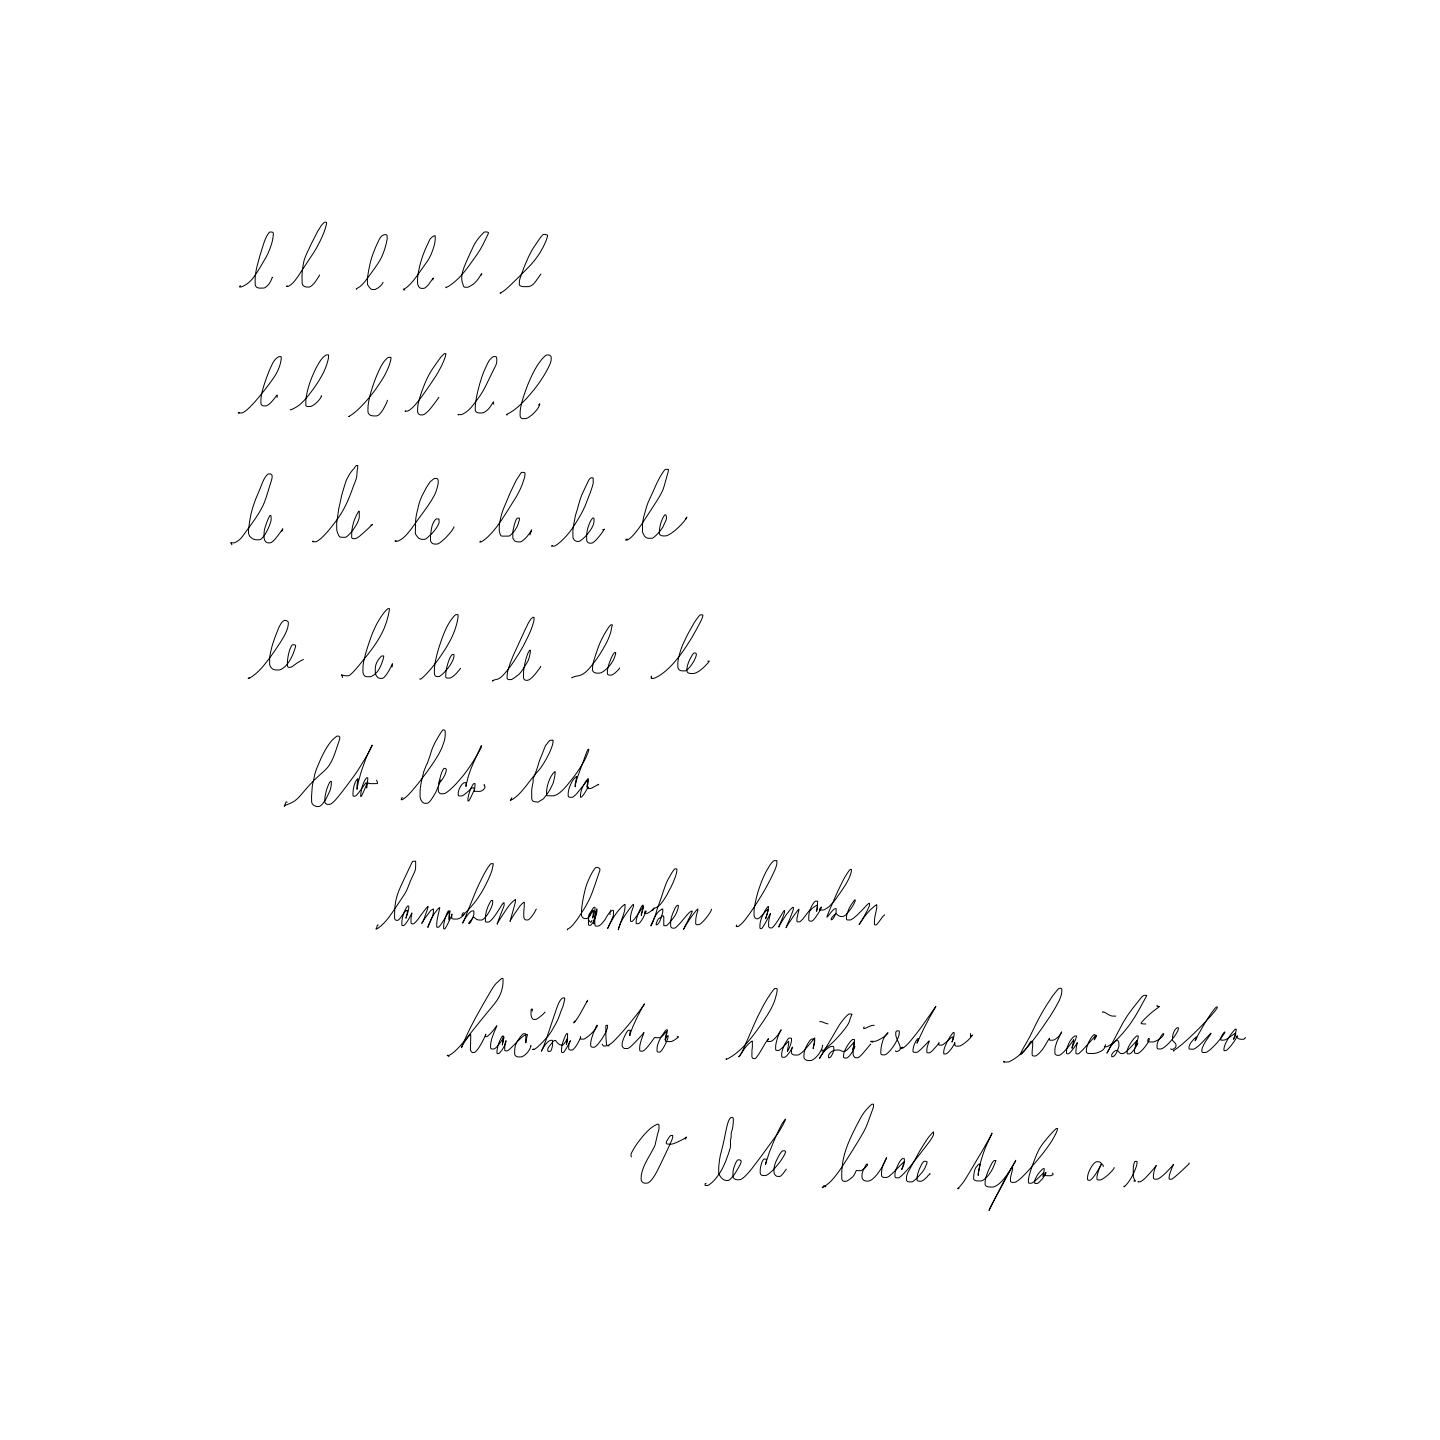 l l l l l l
l l l l l l
le le le le le le
le le le le le le
leto leto leto
lamokem lamoken lamoken
hračkárstvo hračkárstvo hračkárstvo
V lete bude teplo a su